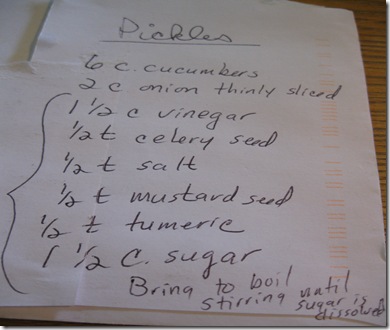 Pickles
6 c. cucumbers
2 c onion thinly sliced
1 1/2 c vinegar
1/2 t celery seed
1/2 t salt
1/2 t mustard seed
1/2 t tumeric
1 1/2 c. sugar
Bring to boil
stirring until
sugar is
dissolved